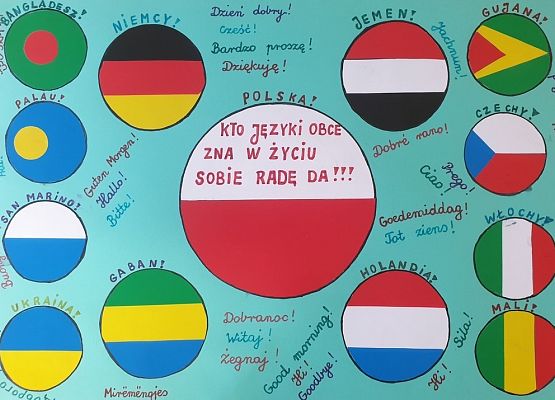 BANGLADESZ!
NIEMCY!
Dzień dobry!
Cześć!
Bardzo proszę!
Dziękuję!
JEMEN!
Jachnun!
GUJANA!
PALAU!
Guten Morgen!
Hallo!
Bitte!
POLSKA!
KTO JĘZYKI OBCE
ZNA W ŻYCIU
SOBIE RADĘ DA!!!
Dobré rano!
CZECHY!
Prego!
Ciao!
SAN MARINO!
Goedemiddag!
Tot ziens!
WŁOCHY!
UKRAINA!
GABAN!
HOLANDIA!
MALI!
Dobranoc!
Witaj!
Żegnaj!
Good morning!
Hi!
Goodbye!
Sila!
Hi!
Mirëmëngjes